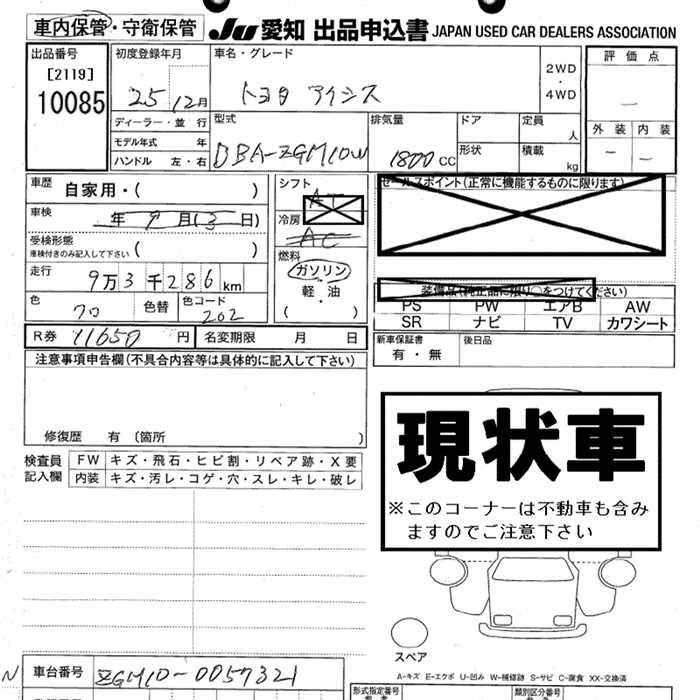 車内保管・守衛保管 JU 愛知 出品申込書 JAPAN USED CAR DEALERS ASSOCIATION
出品番号
[2119]
10085
初度登録年月
25 12月
車名・グレード
トヨタ アイシス
2WD
・
4WD
評価点
—
外装 内装
— —
ディーラー・並行
モデル年式 年
ハンドル 左・右
型式
DBA-ZGM10W
排気量
1800 CC
ドア
定員 人
形状
積載 kg
車歴 自家用・( )
車検 年 9月(3日)
受検形態
車検付きのみ記入して下さい ( )
走行 9万3千286km
色 クロ 色替 色コード 202
シフト
AT
冷房
AC
燃料
ガソリン
軽・油
( )
セールスポイント(正常に機能するものに限ります)
装備品(純正品に限り○をつけてください)
PS PW エアB AW
SR ナビ TV カワシート
R券 11650円 名変期限 月 日
新車保証書 有・無 後日品
注意事項申告欄(不具合内容等は具体的に記入して下さい)
修復歴 有 (箇所 )
検査員記入欄
FW キズ・飛石・ヒビ割・リペア跡・X要
内装 キズ・汚レ・コゲ・穴・スレ・キレ・破レ
現状車
※このコーナーは不動車も含み
ますのでご注意下さい
スペア
A-キズ E-エクボ U-凹み W-補修跡 S-サビ C-腐食 XX-交換済
N 車台番号 ZGM10-0057321
形式指定番号 類別区分番号